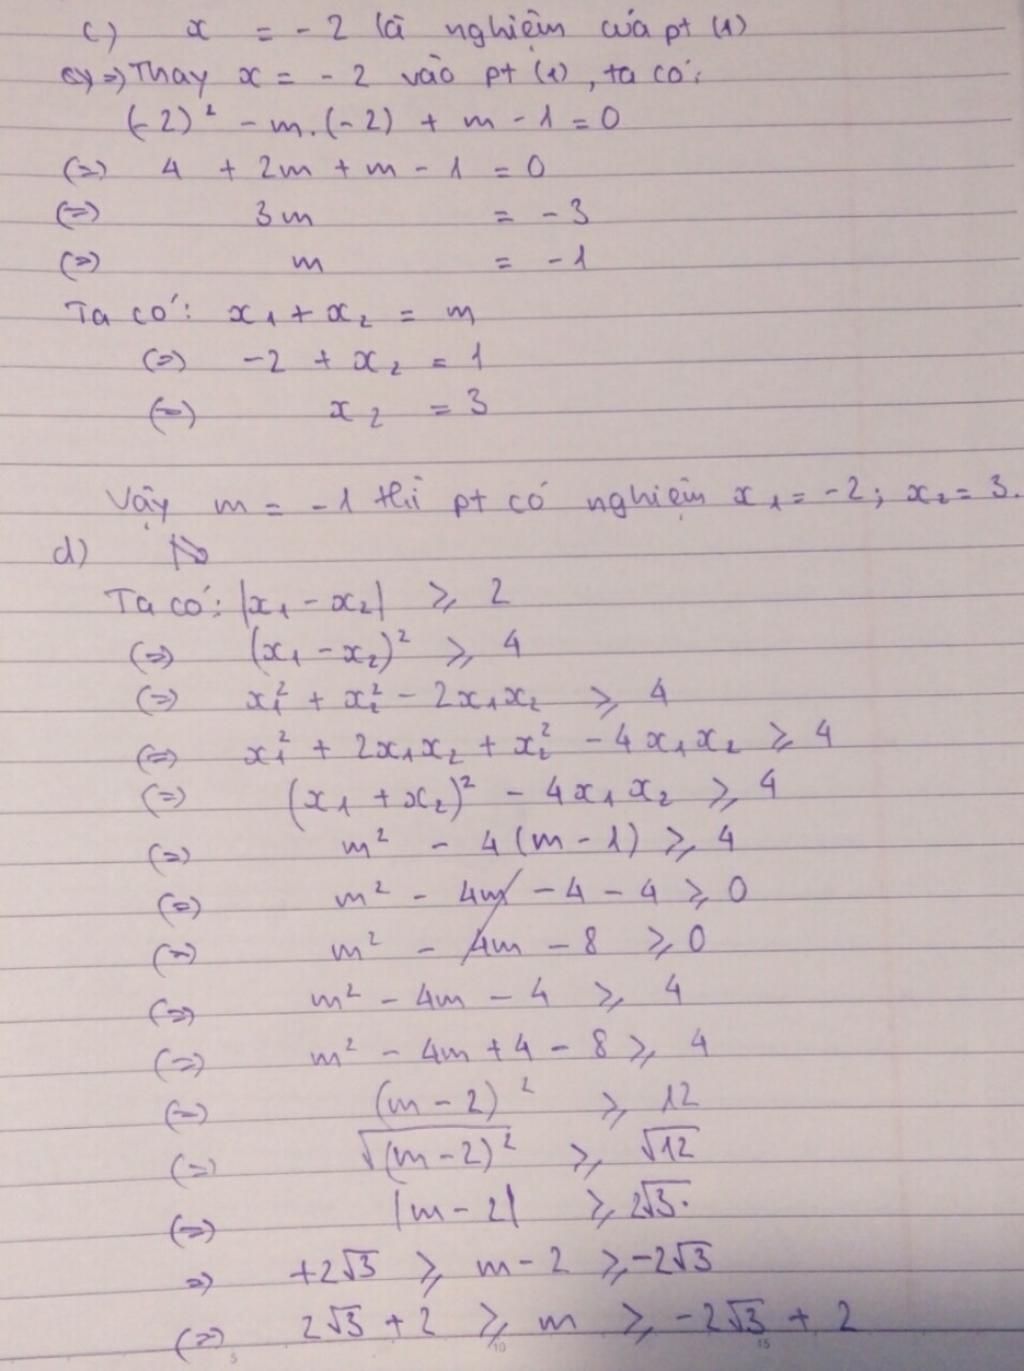 c) x = -2 là nghiệm của pt (1)
=> Thay x = -2 vào pt (1), ta có:
(-2)² - m.(-2) + m - 1 = 0
(=) 4 + 2m + m - 1 = 0
(=) 3m = -3
(=) m = -1
Ta có: x₁ + x₂ = m
(=) -2 + x₂ = 1
(=) x₂ = 3
Vậy m = -1 thì pt có nghiệm x₁ = -2; x₂ = 3.
d)
Ta có: |x₁ - x₂| ≥ 2
(=) (x₁ - x₂)² ≥ 4
(=) x₁² + x₂² - 2x₁x₂ ≥ 4
(=) x₁² + 2x₁x₂ + x₂² - 4x₁x₂ ≥ 4
(=) (x₁ + x₂)² - 4x₁x₂ ≥ 4
(=) m² - 4(m - 1) ≥ 4
(=) m² - 4m - 4 - 4 ≥ 0
(=) m² - 4m - 8 ≥ 0
(=) m² - 4m - 4 ≥ 4
(=) m² - 4m + 4 - 8 ≥ 4
(=) (m - 2)² ≥ 12
(=) √(m - 2)² ≥ √12
(=) |m - 2| ≥ 2√3.
=> +2√3 ≥ m - 2 ≥ -2√3
(=) 2√3 + 2 ≥ m ≥ -2√3 + 2
5 10 15